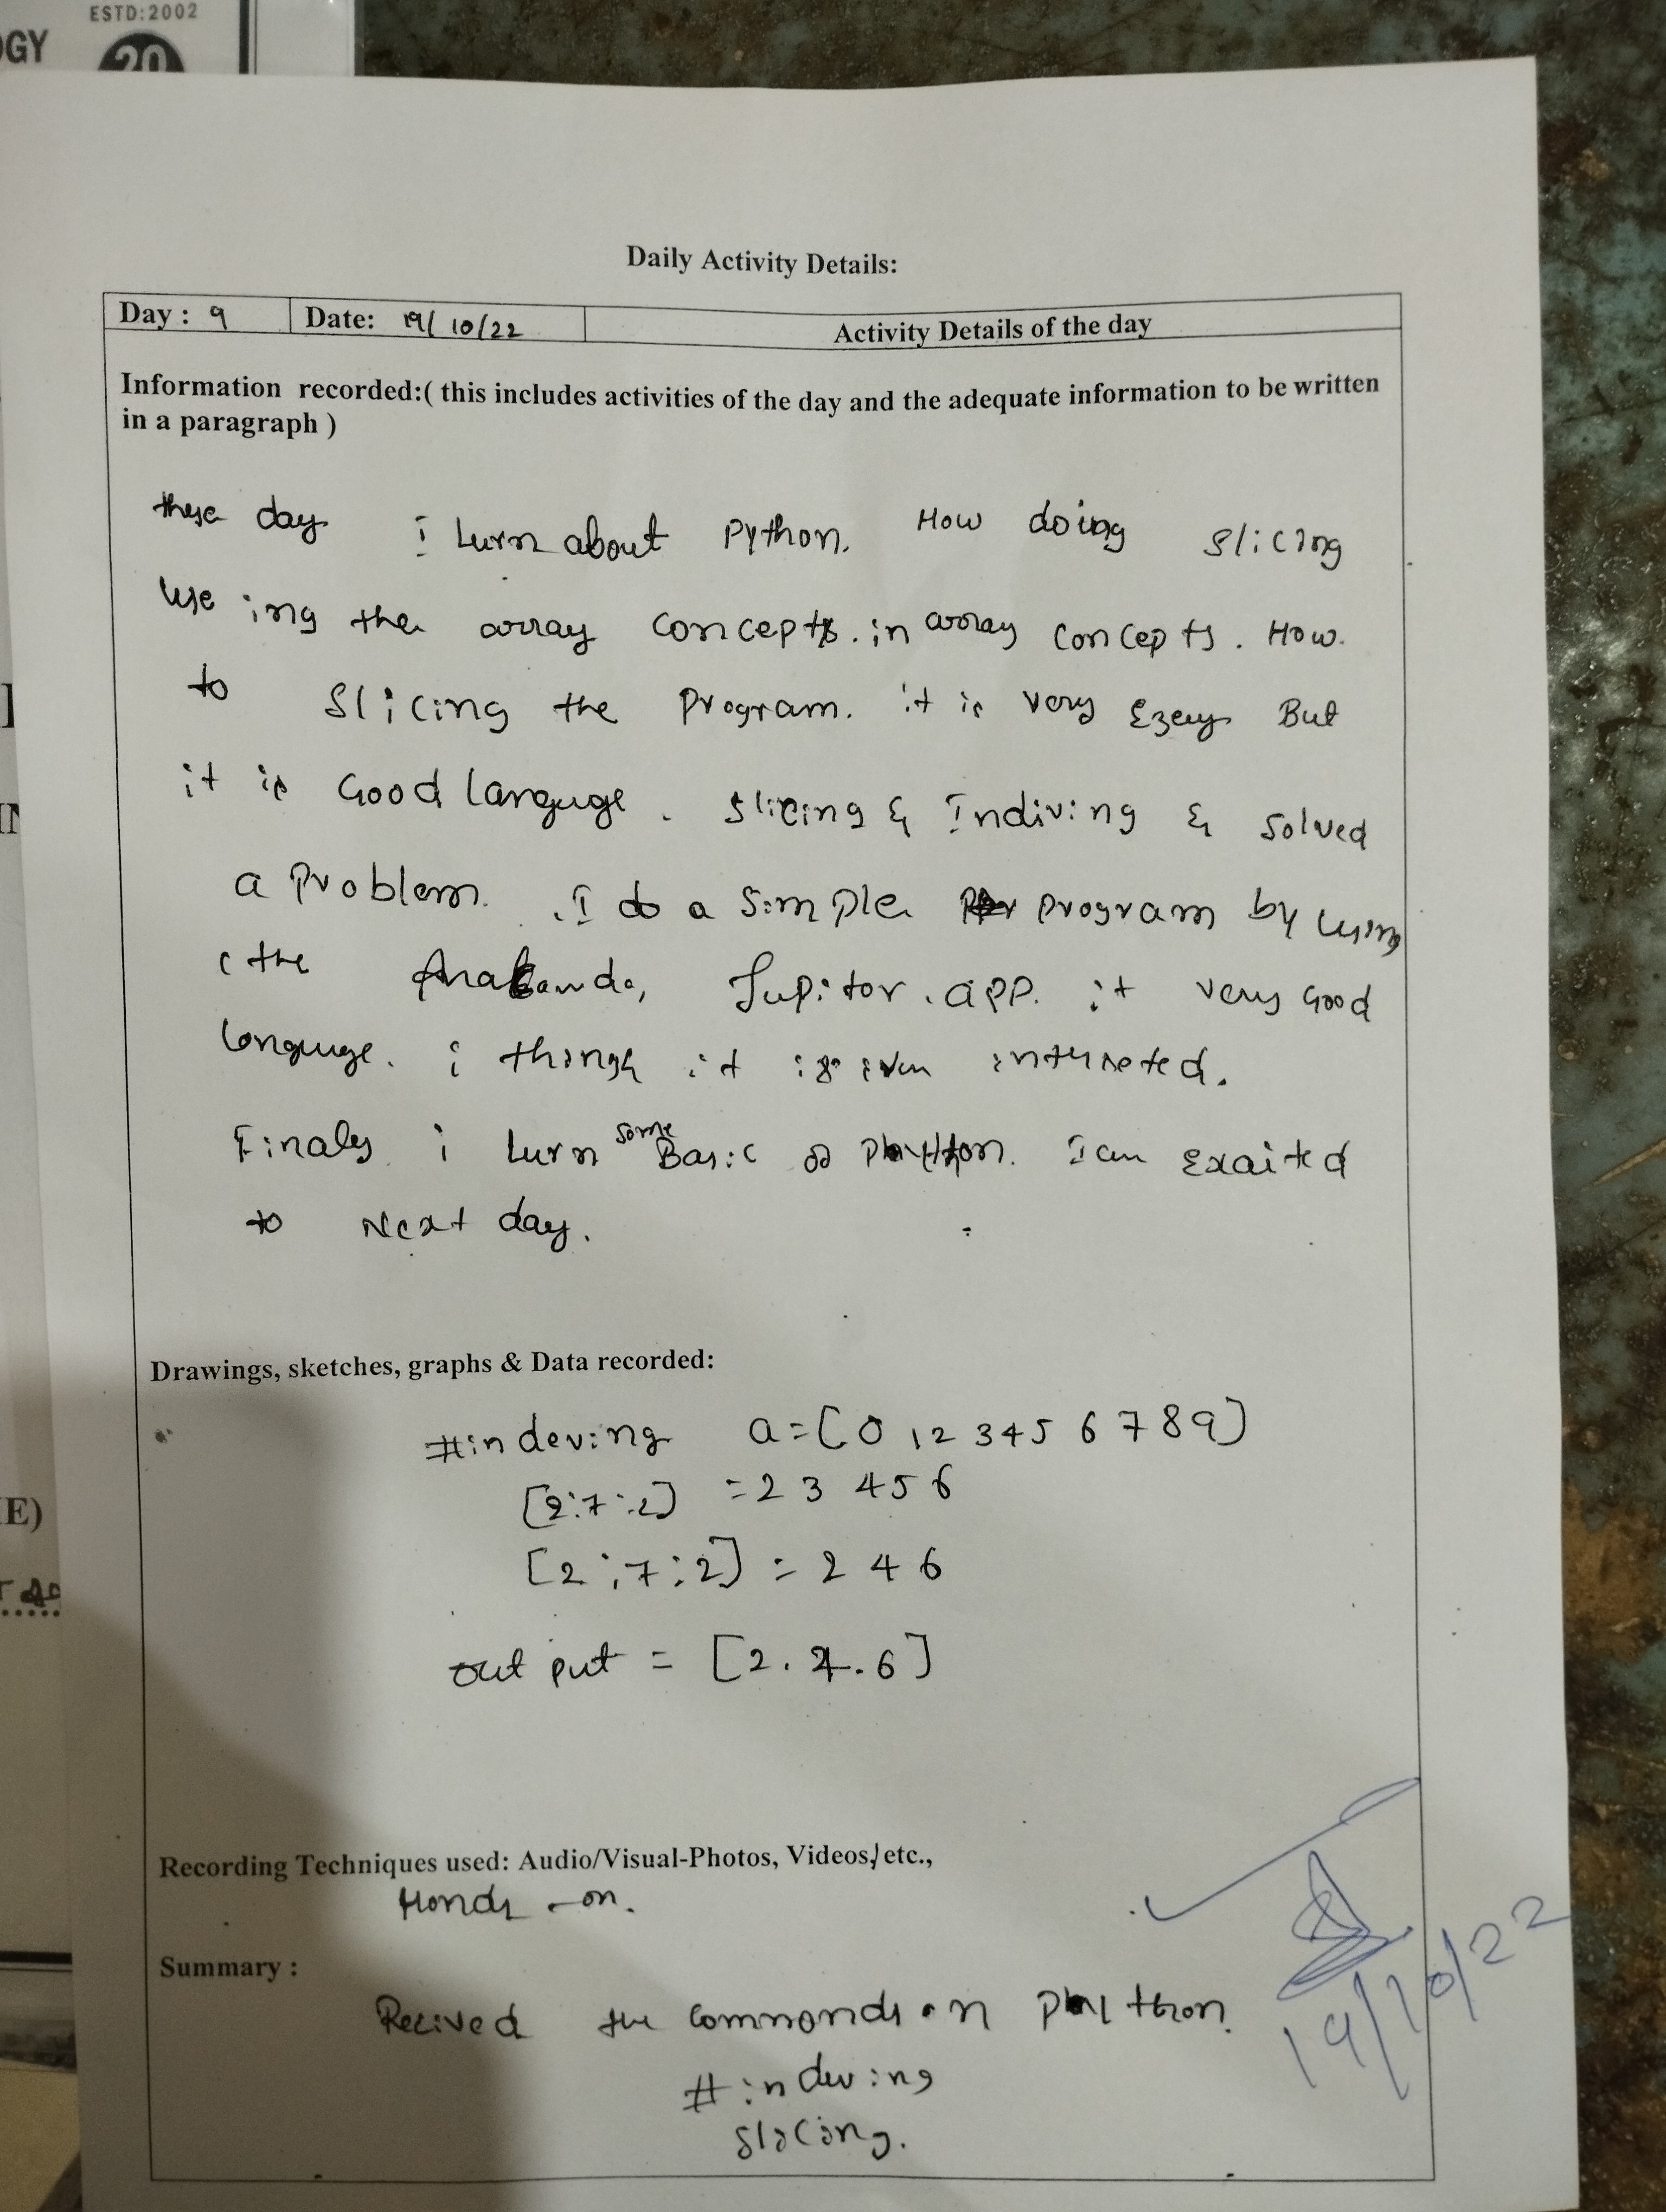 ESTD:2002
OGY
20
Daily Activity Details:
Day : 9 Date: 19/10/22 Activity Details of the day
Information recorded:( this includes activities of the day and the adequate information to be written
in a paragraph )
these day i lurn about Python. How doing slicing
use ing the array concepts. in array concepts. How.
to slicing the program. it is very Ezey But
it is Good languge. slicing & Indiving & solved
a Problem. I do a simple program by using
the Anakanda, Jupitor. app. it very Good
languge. i thingk it is intereted.
Finaly i lurn some Basic of Phython. I am Exaited
to Next day.
Drawings, sketches, graphs & Data recorded:
#indeving a=[0 1 2 3 4 5 6 7 8 9]
[2:7:2] = 2 3 4 5 6
[2:7:2] = 2 4 6
out put = [2. 4. 6]
Recording Techniques used: Audio/Visual-Photos, Videos, etc.,
Hands-on.
Summary :
Recived the commonds on python.
#indeving
slicing.
19/10/22
E)